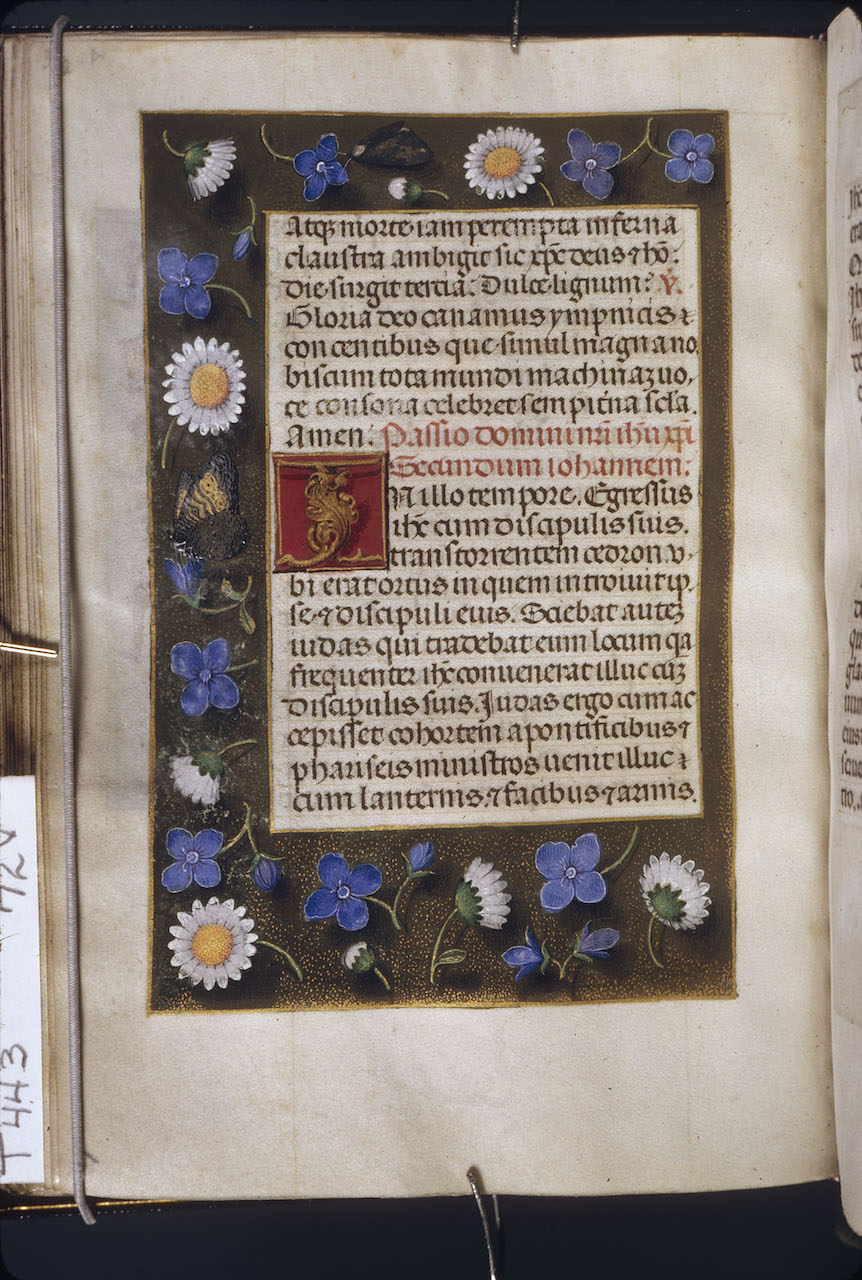 Atq3 morte iam perempta inferna
claustra ambigit sic xpe deus ⁊ ho:
die surgit tercia: Dulce lignum: V.
Gloria deo canamus ympnicis ⁊
concentibus que simul magna no
biscum tota mundi machina 3 uo,
ce consona celebret sempitna scla.
Amen: Passio domini nri ihu xpi
Secundum iohannem:
In illo tempore. Egressus
ihc cum discipulis suis.
trans torrentem cedron. v,
bi erat ortus in quem introiuit ip,
se ⁊ discipuli eius. Sciebat aute3
iudas qui tradebat eum locum qa
frequenter ihc convenerat illuc cu3
discipulis suis. Judas ergo cum ac
cepisset cohortem a pontificibus ⁊
phariseis ministros uenit illuc ⁊
cum lanternis. ⁊ facibus ⁊ armis.
T443